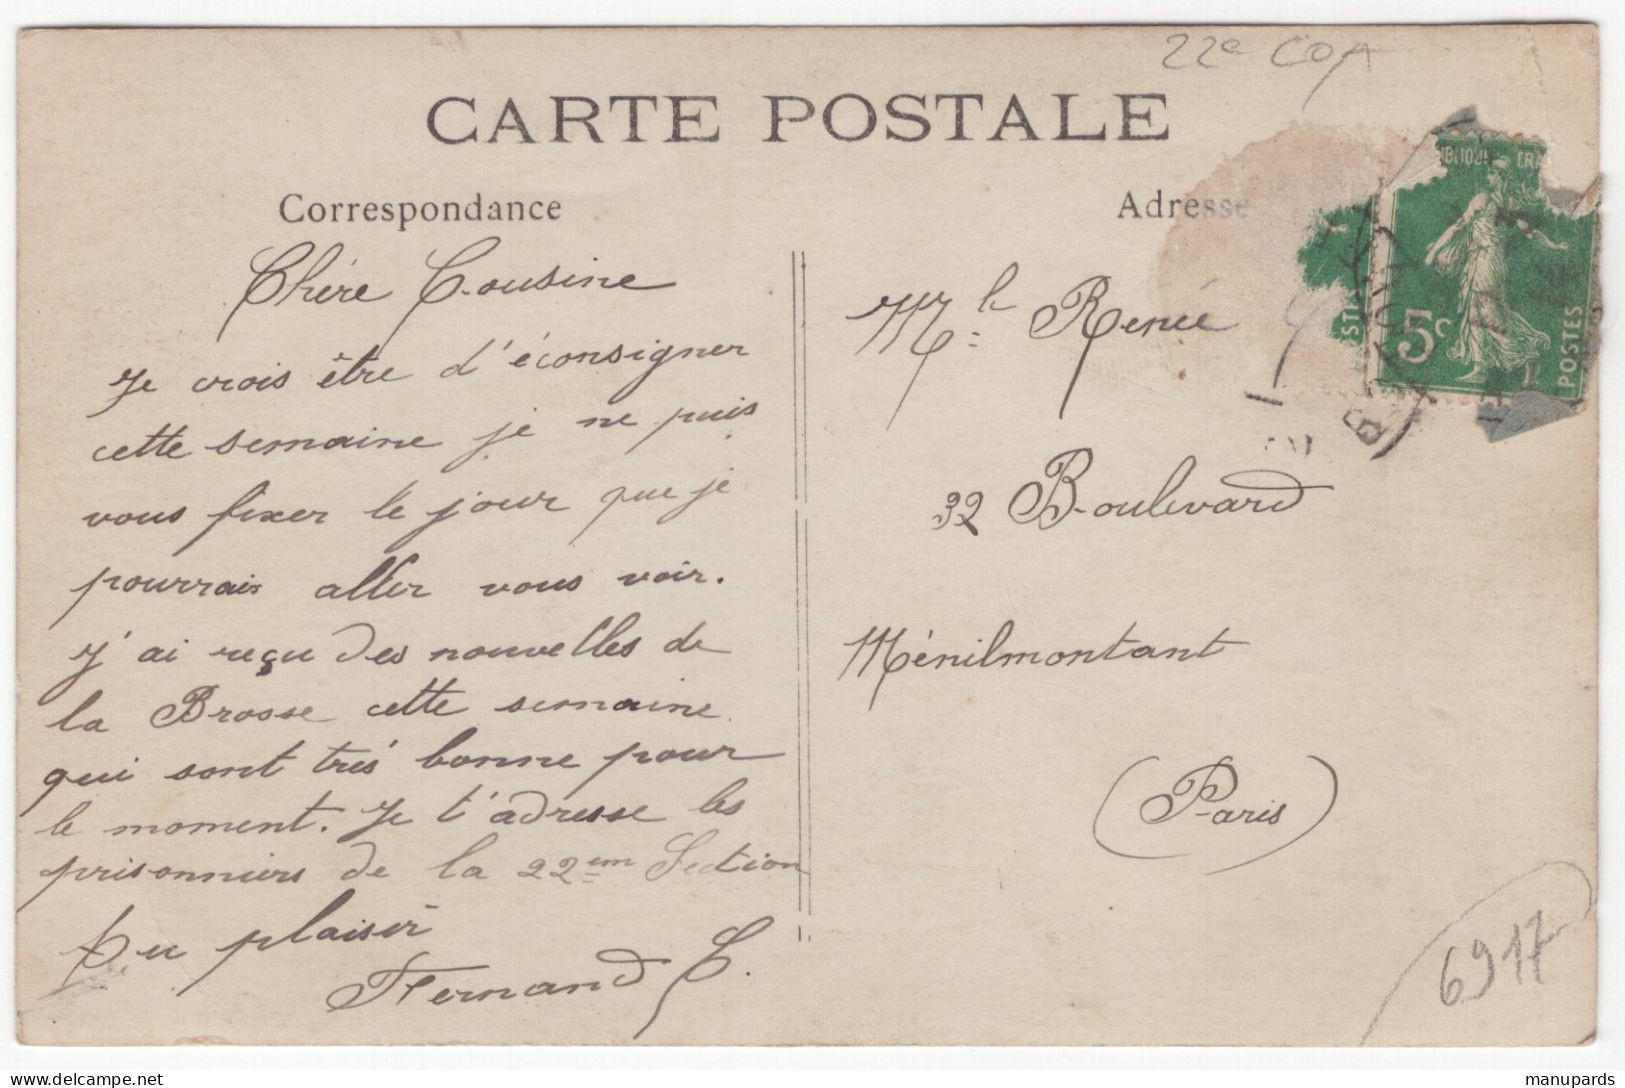 22e COA
CARTE POSTALE
Correspondance
Chére Cousine
Je crois être d'éconsigner
cette semaine je ne puis
vous fixer le jour que je
pourrais aller vous voir.
J'ai reçu des nouvelles de
la Brosse cette semaine
qui sont trés bonne pour
le moment. Je t'adresse les
prisonniers de la 22em Section
Au plaisir
Fernand C.
Adresse
Mle Renée
32 Boulevard
Ménilmontant
(Paris)
5c
POSTES
6917
manupards